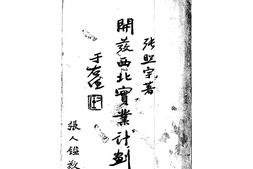 張照宗著
開發西北實業計劃
于右任
張人鑑敬